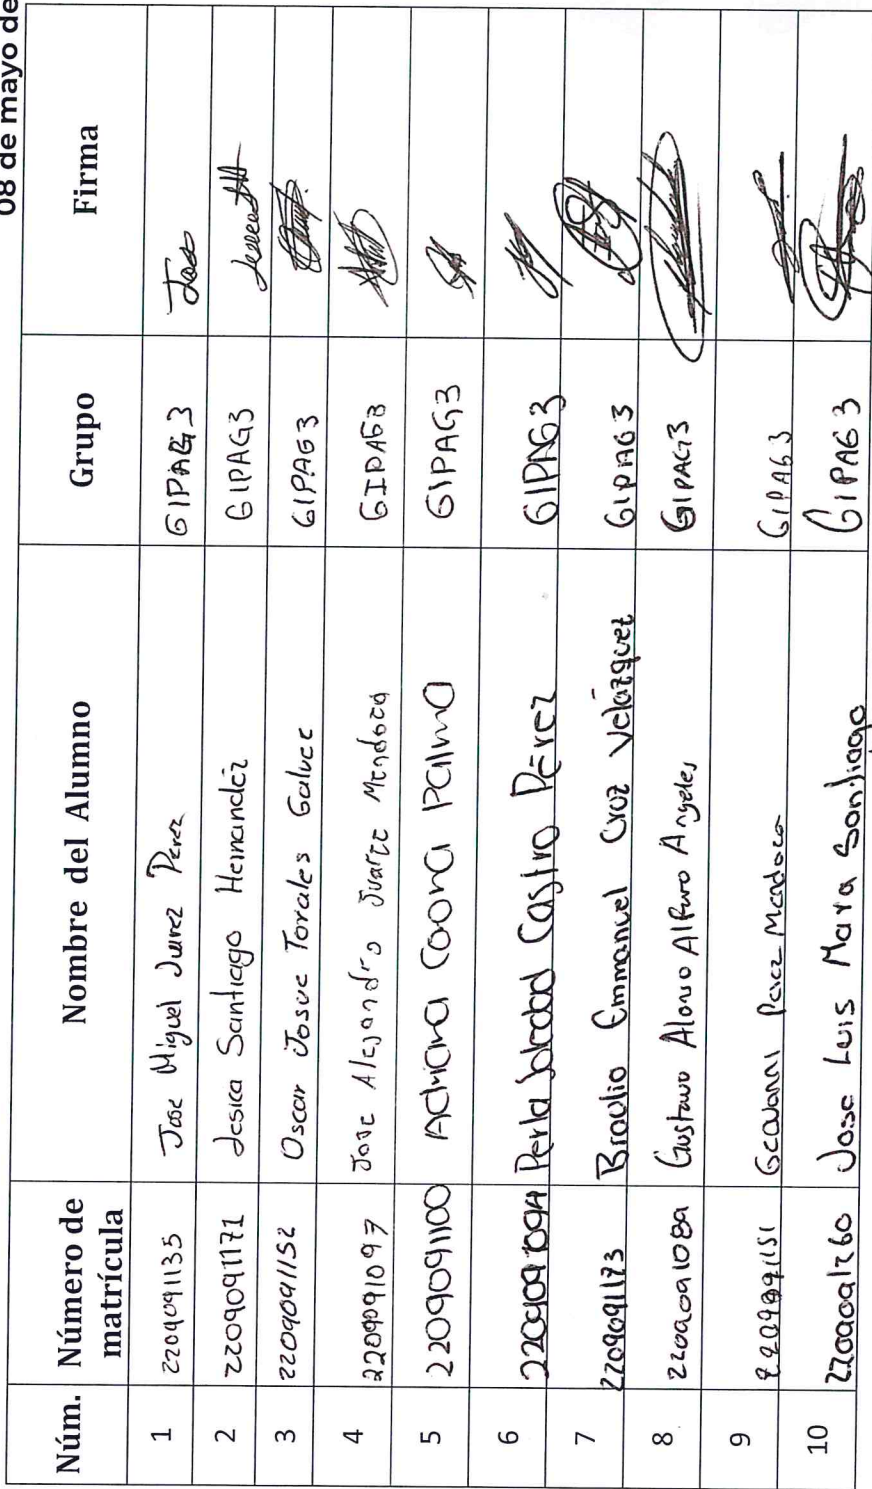 08 de mayo de
Núm. Número de matrícula Nombre del Alumno Grupo Firma
1 2209091135 Jose Miguel Juarez Perez GIPAG3 Jose
2 2209091171 Jesica Santiago Hernandez GIPAG3
3 2209091152 Oscar Josue Torales Galvez GIPAG3
4 2209091097 Jose Alejandro Juarez Mendoza GIPAG3
5 2209091100 Adriana Coona Palma GIPAG3
6 2209091094 Perla Soledad Castro Pérez GIPAG3
7 2209091173 Braulio Emmanuel Cruz Velázquez GIPAG3
8 2209091089 Gustavo Alonso Alfaro Angeles GIPAG3
9 2209091151 Geovanni Perez Mendoza GIPAG3
10 2209091260 Jose Luis Mara Santiago GIPAG3